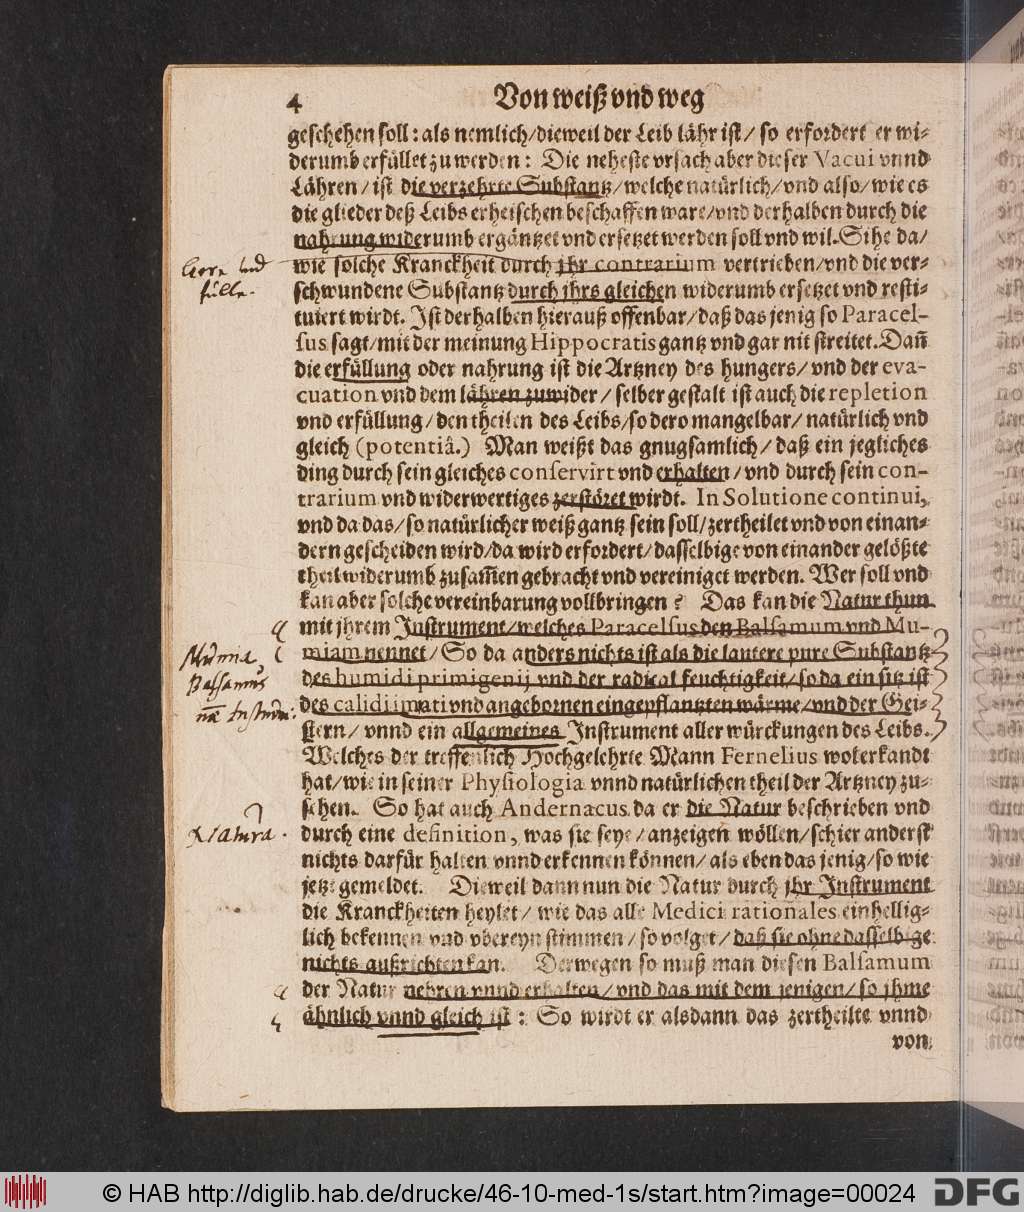 4 Von weiß vnd weg
geschehen soll: als nemlich/ dieweil der Leib lähr ist/ so erfordert er wi-
derumb erfüllet zu werden: Die neheste vrsach aber dieser Vacui vnnd
Lähren/ ist die verzehrte Substantz/ welche natürlich/ vnd also/ wie es
die glieder deß Leibs erheischen beschaffen ware/ vnd derhalben durch die
nahrung widerumb ergäntzet vnd ersetzet werden soll vnd wil. Sihe da/
wie solche Kranckheit durch jhr contrarium vertrieben/ vnd die ver-
schwundene Substantz durch jhrs gleichen widerumb ersetzet vnd resti-
tuiert wirdt. Ist derhalben hierauß offenbar/ daß das jenig so Paracel-
sus sagt/ mit der meinung Hippocratis gantz vnd gar nit streitet. Dañ
die erfüllung oder nahrung ist die Artzney des hungers/ vnd der eva-
cuation vnd dem lähren zuwider/ selber gestalt ist auch die repletion
vnd erfüllung/ den theilen des Leibs/ so dero mangelbar/ natürlich vnd
gleich (potentiâ.) Man weißt das gnugsamlich/ daß ein jegliches
ding durch sein gleiches conservirt vnd erhalten/ vnd durch sein con-
trarium vnd widerwertiges zerstöret wirdt. In Solutione continui,
vnd da das/ so natürlicher weiß gantz sein soll/ zertheilet vnd von einan-
dern gescheiden wird/ da wird erfordert/ dasselbige von einander gelößte
theil widerumb zusam̃en gebracht vnd vereiniget werden. Wer soll vnd
kan aber solche vereinbarung vollbringen? Das kan die Natur thun
mit jhrem Instrument/ welches Paracelsus den Balsamum vnd Mu-
miam nennet/ So da anders nichts ist als die lautere pure Substantz
des humidi primigenij vnd der radical feuchtigkeit/ so da ein sitz ist
des calidi innati vnd angebornen eingepflantzten wärme/ vnd der Gei-
stern/ vnnd ein allgemeines Instrument aller würckungen des Leibs.
Welches der treffenlich Hochgelehrte Mann Fernelius wol erkandt
hat/ wie in seiner Physiologia vnnd natürlichen theil der Artzney zu-
sehen. So hat auch Andernacus da er die Natur beschrieben vnd
durch eine definition, was sie seye/ anzeigen wöllen/ schier anderst
nichts darfür halten vnnd erkennen können/ als eben das jenig/ so wie
jetzt gemeldet. Dieweil dann nun die Natur durch jhr Instrument
die Kranckheiten heylet/ wie das alle Medici rationales einhellig-
lich bekennen vnd vbereyn stimmen/ so volget/ daß sie ohne dasselbige
nichts außrichten kan. Derwegen so muß man diesen Balsamum
der Natur nehren vnnd erhalten/ vnd das mit dem jenigen/ so jhme
ähnlich vnnd gleich ist: So wirdt er alsdann das zertheilte vnnd
von
fülle.
Mumia,
Balsamus
Natura.
© HAB http://diglib.hab.de/drucke/46-10-med-1s/start.htm?image=00024
DFG